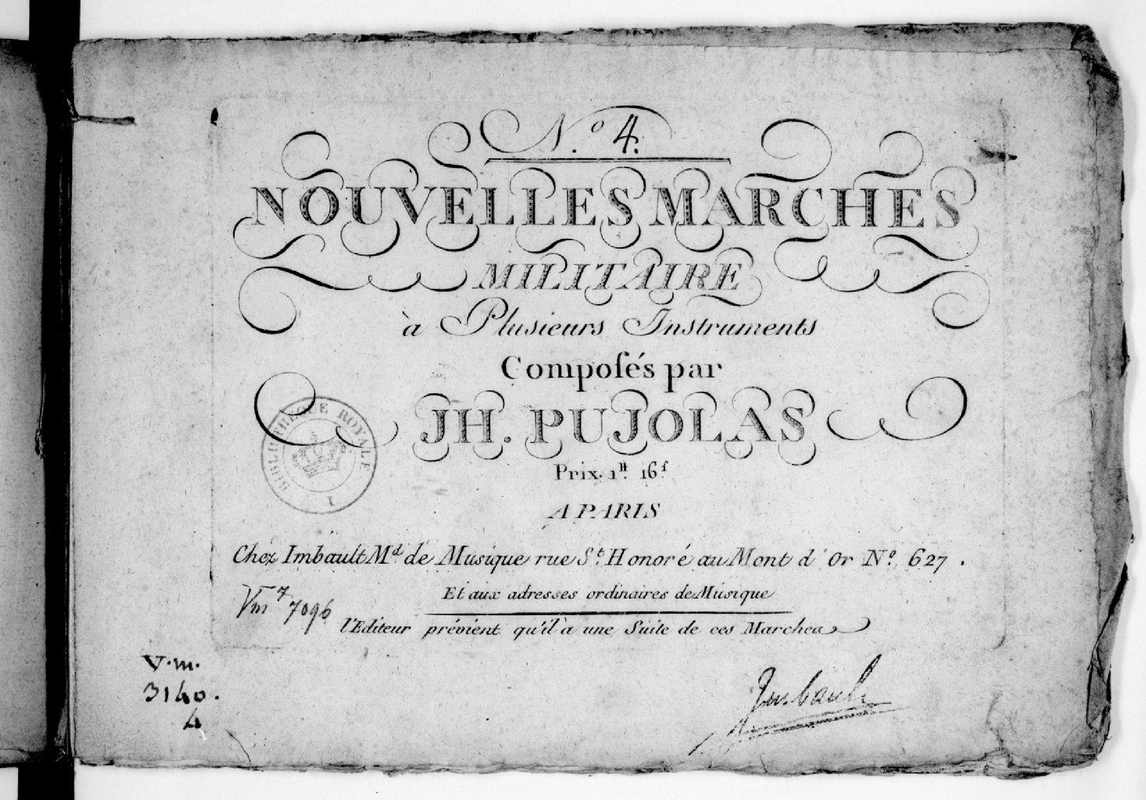 N.º 4.
NOUVELLES MARCHES
MILITAIRE
à Plusieurs Instruments
Composés par
JH. PUJOLAS
Prix. 1ᴴ 16ˢ
A PARIS
Chez Imbault Mᵈ de Musique rue Sᵗ Honoré au Mont d'Or Nº 627.
Et aux adresses ordinaires de Musique
l'Editeur prévient qu'il à une Suite de ces Marches
BIBLIOTHEQUE ROYALE
I
Vm⁷ 7096
V.m.
3140.
4
Imbault